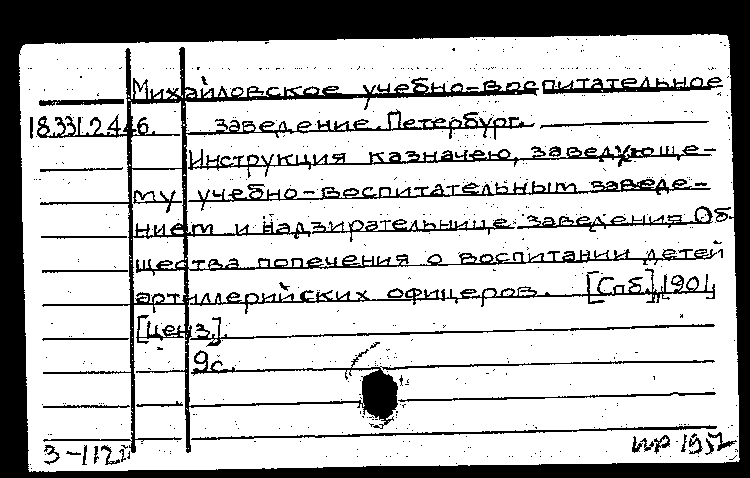 Михайловское учебно-воспитательное
18.331.2.446. заведение. Петербург.
Инструкция казначею, заведующе-
му учебно-воспитательным заведе-
нием и надзирательнице заведения Об-
щества попечения о воспитании детей
артиллерийских офицеров. [Спб.], 1901,
[ценз.].
9с.
3-112
1952